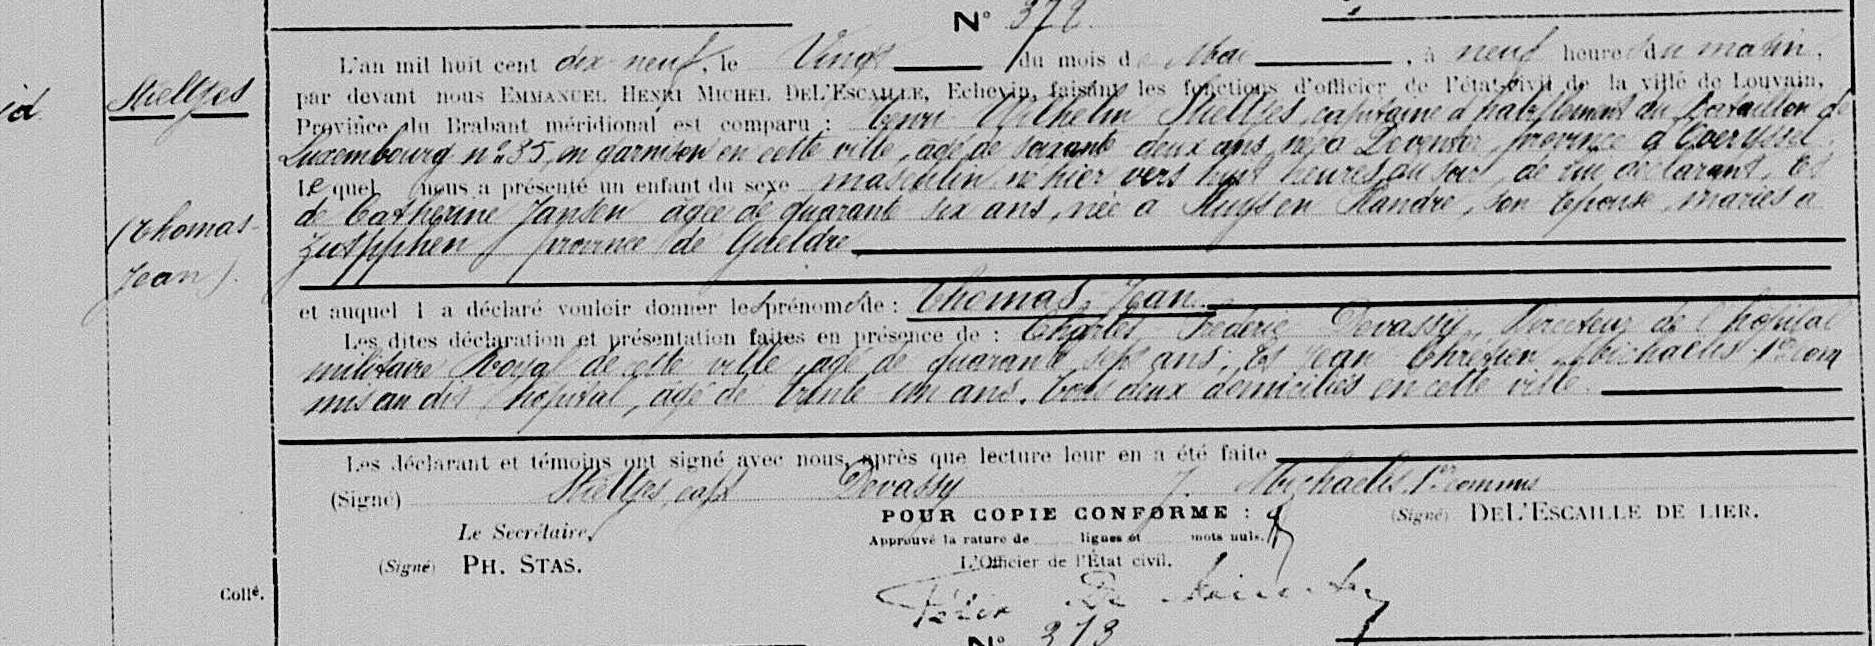 N° 372.
L'an mil huit cent dix neuf, le Vingt du mois de Mai, à neuf heures du matin,
par devant nous EMMANUEL HENRI MICHEL DEL'ESCAILLE, Echevin, faisant les fonctions d'officier de l'état-civil de la ville de Louvain,
id.
Province du Brabant méridional est comparu : Henri Wilhelm capitaine d'habillement du bataillon de
Luxembourg n° 35, en garnison en cette ville, âgé de soixante deux ans, né à Deventer, province d'Overyssel.
Lequel nous a présenté un enfant du sexe masculin, né hier vers huit heures du soir, de lui déclarant, et
de Catherine Jansen âgée de quarante six ans, née à en Flandre, son épouse, mariés à
(Thomas-
Jean).
Zutphhen province de Gueldre
et auquel il a déclaré vouloir donner les prénoms de : Thomas, Jean
Les dites déclaration et présentation faites en présence de : Charles Fréderic Devassy, Directeur de l'hopital
militaire Royal de cette ville, agé de quarante sept ans ; et Jean Chrétien Michaelis 1er com
mis au dit hopital, agé de trente un ans. Tous deux domiciliés en cette ville.
Les déclarant et témoins ont signé avec nous, après que lecture leur en a été faite
(Signé) capt Devassy J. Michaelis, 1er commis
POUR COPIE CONFORME :
(Signé) DEL'ESCAILLE DE LIER.
Le Secrétaire,
Approuvé la rature de lignes et mots nuls.
(Signé) PH. STAS.
L'Officier de l'État civil.
Collé.
N° 373